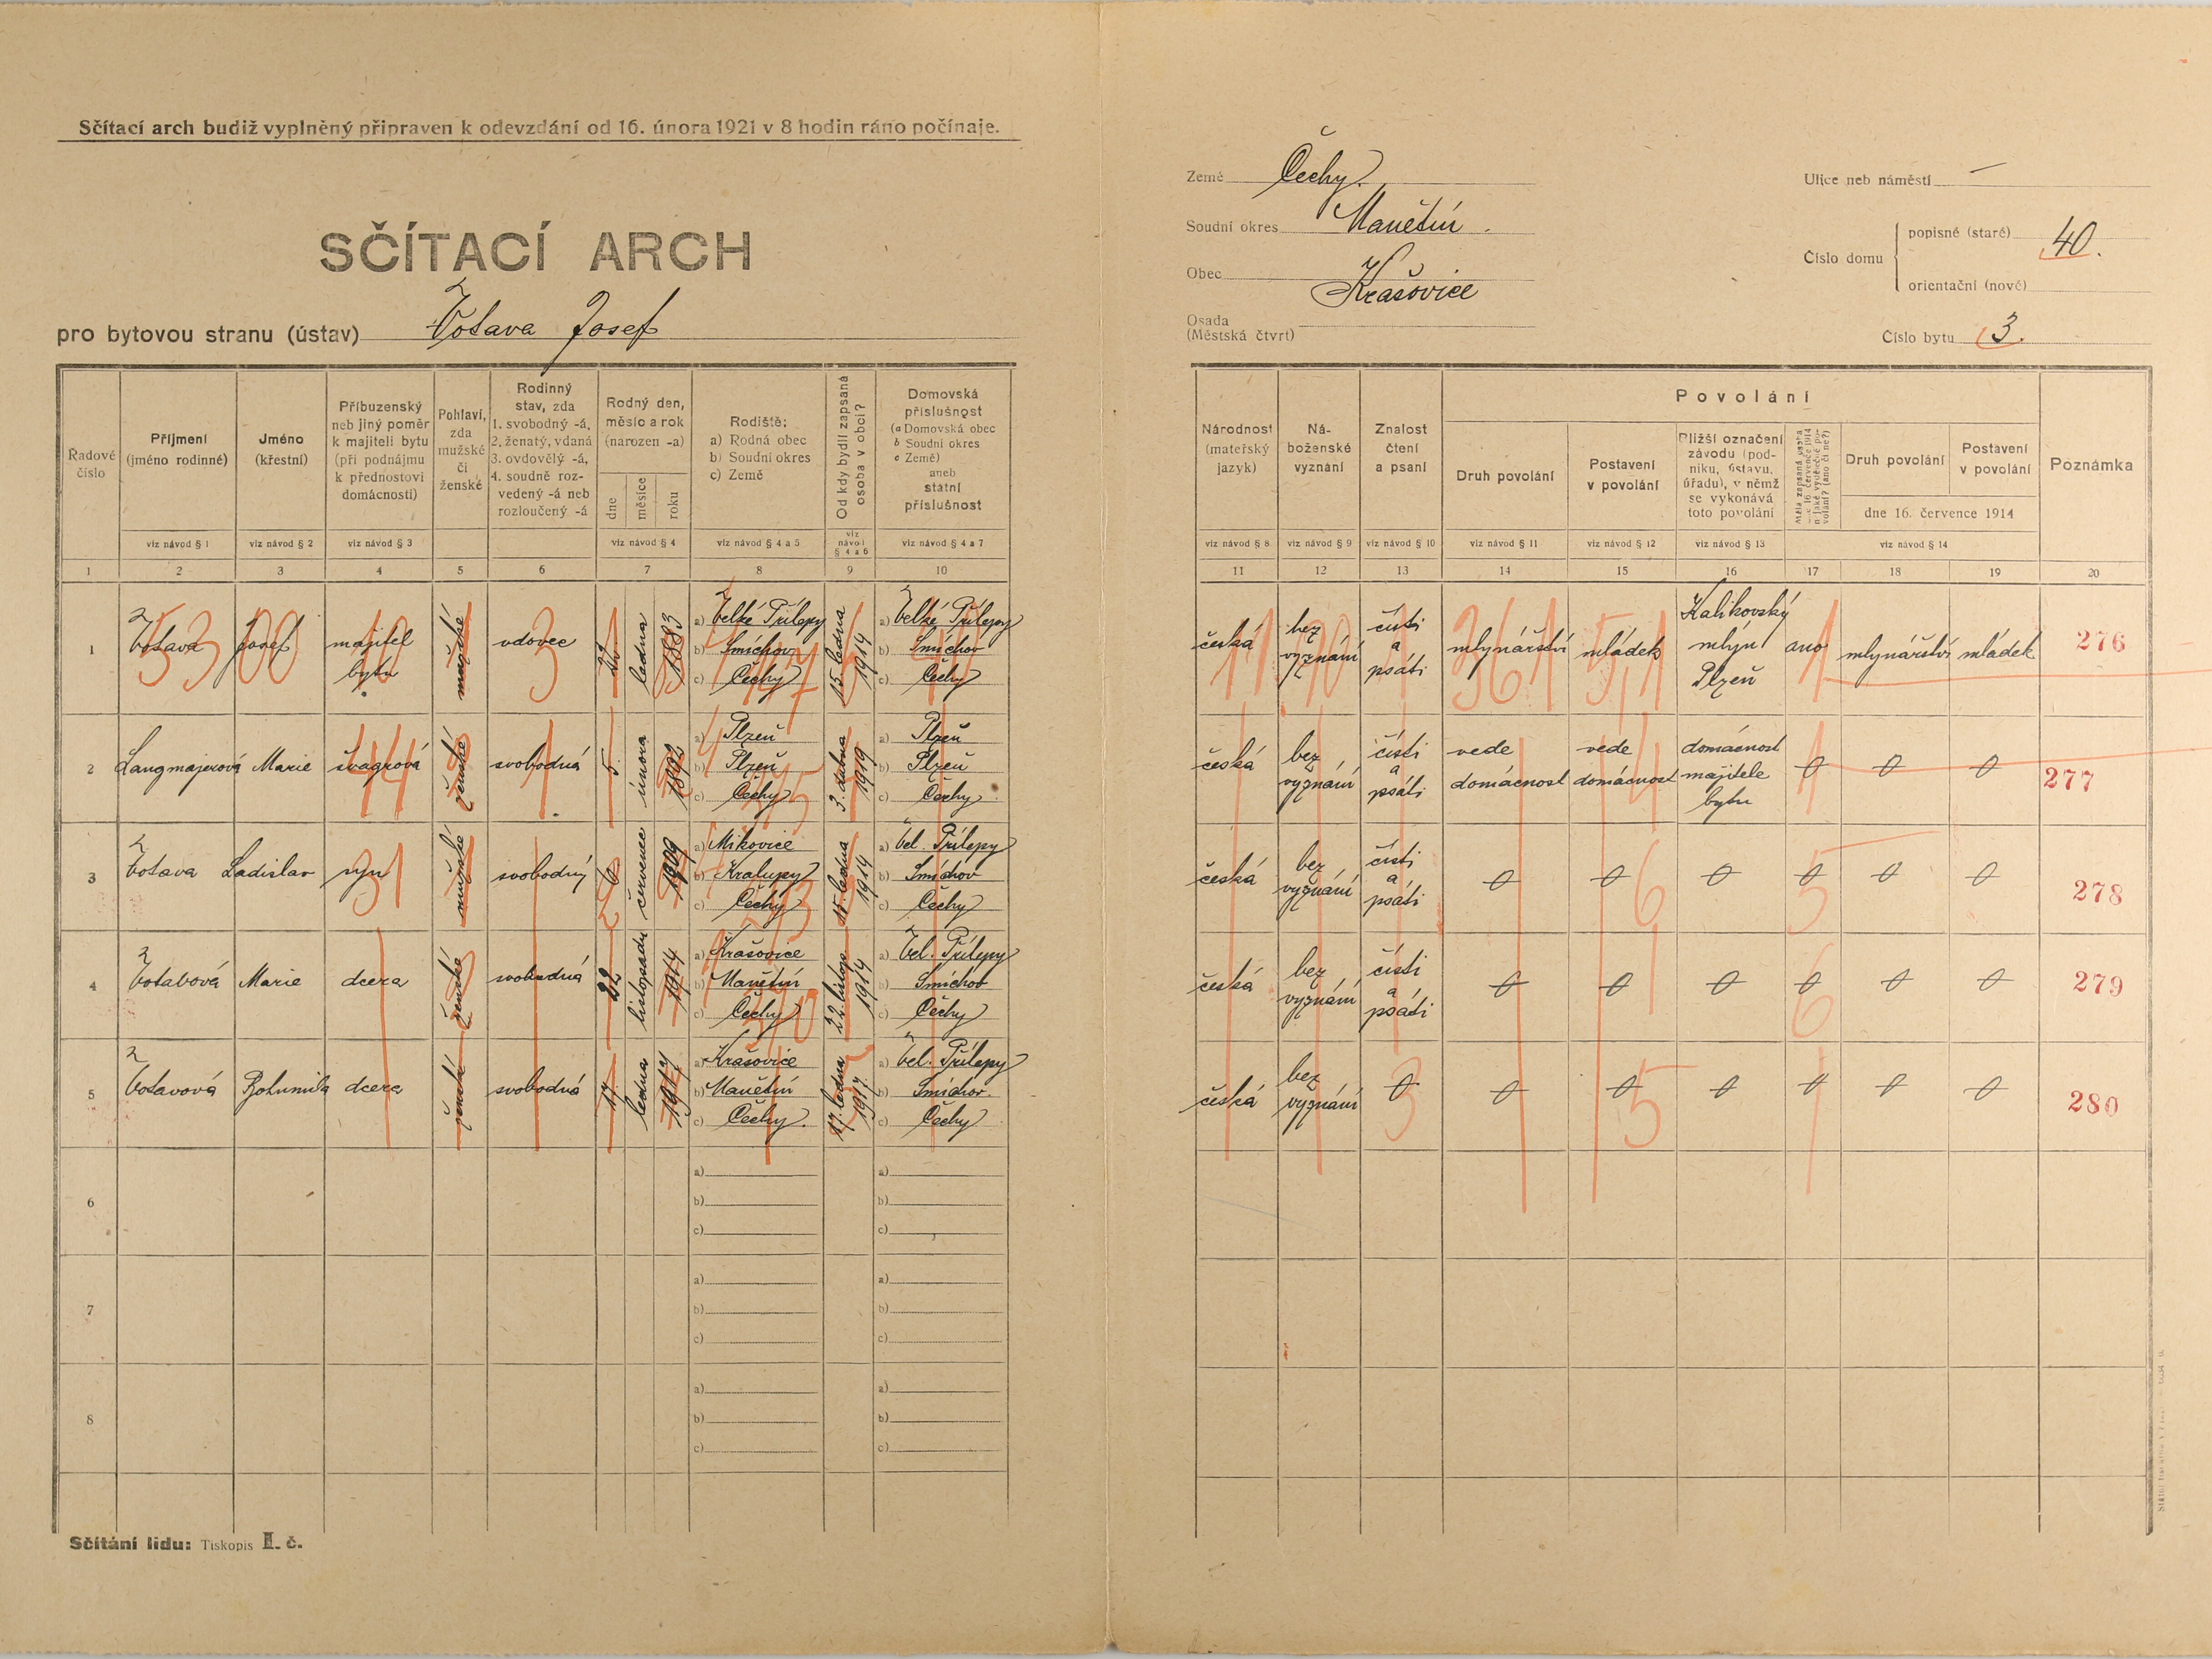 Sčítací arch budiž vyplněný připraven k odevzdání od 16. února 1921 v 8 hodin ráno počínaje.
SČÍTACÍ ARCH
pro bytovou stranu (ústav) Votava Josef
Země Čechy.
Soudní okres Manětín.
Obec Krašovice
Osada
(Městská čtvrť)
Ulice neb náměstí —
Číslo domu
popisné (staré) 40.
orientační (nové)
Číslo bytu 3.
Řadové číslo
Příjmení (jméno rodinné)
Jméno (křestní)
Příbuzenský neb jiný poměr k majiteli bytu (při podnájmu k přednostovi domácnosti)
Pohlaví, zda mužské či ženské
Rodinný stav, zda 1. svobodný -á, 2. ženatý, vdaná 3. ovdovělý -á, 4. soudně rozvedený -á neb rozloučený -á
Rodný den, měsíc a rok (narozen -a)
dne měsíce roku
Rodiště: a) Rodná obec b) Soudní okres c) Země
Od kdy bydlí zapsaná osoba v obci?
Domovská příslušnost (a Domovská obec b Soudní okres c Země) aneb státní příslušnost
viz návod § 1 viz návod § 2 viz návod § 3 viz návod § 4 viz návod § 4 a 5 viz návod § 4 a 6 viz návod § 4 a 7
1 2 3 4 5 6 7 8 9 10
Národnost (mateřský jazyk)
Náboženské vyznání
Znalost čtení a psaní
Povolání
Druh povolání
Postavení v povolání
Bližší označení závodu (podniku, ústavu, úřadu), v němž se vykonává toto povolání
Druh povolání
Postavení v povolání
dne 16. července 1914
Poznámka
viz návod § 8 viz návod § 9 viz návod § 10 viz návod § 11 viz návod § 12 viz návod § 13 viz návod § 14
11 12 13 14 15 16 17 18 19 20
1 Votava Josef majitel bytu mužské vdovec 27. ledna 1883 a) Velké Přílepy b) Smíchov c) Čechy 15. ledna 1914 a) Velké Přílepy b) Smíchov c) Čechy
česká bez vyznání čísti a psáti mlynářství mládek Kalikovský mlýn Plzeň ano mlynářství mládek 276
2 Langmajerová Marie švagrová ženské svobodná 5. února 1892 a) Plzeň b) Plzeň c) Čechy 3. dubna 1919 a) Plzeň b) Plzeň c) Čechy
česká bez vyznání čísti a psáti vede domácnost vede domácnost domácnost majitele bytu 0 0 0 277
3 Votava Ladislav syn mužské svobodný 26 července 1909 a) Mikovice b) Kralupy c) Čechy 15. ledna 1914 a) Vel. Přílepy b) Smíchov c) Čechy
česká bez vyznání čísti a psáti 0 0 0 0 0 0 278
4 Votavová Marie dcera ženské svobodná 22 listopadu 1914 a) Krašovice b) Manětín c) Čechy 22. listop. 1914 a) Vel. Přílepy b) Smíchov c) Čechy
česká bez vyznání čísti a psáti 0 0 0 0 0 0 279
5 Votavová Bohumila dcera ženské svobodná 17. ledna 1917 a) Krašovice b) Manětín c) Čechy. 17. ledna 1917 a) Vel. Přílepy b) Smíchov. c) Čechy
česká bez vyznání 0 0 0 0 0 0 0 280
6 a) b) c) a) b) c)
7 a) b) c) a) b) c)
8 a) b) c) a) b) c)
Sčítání lidu: Tiskopis II. č.